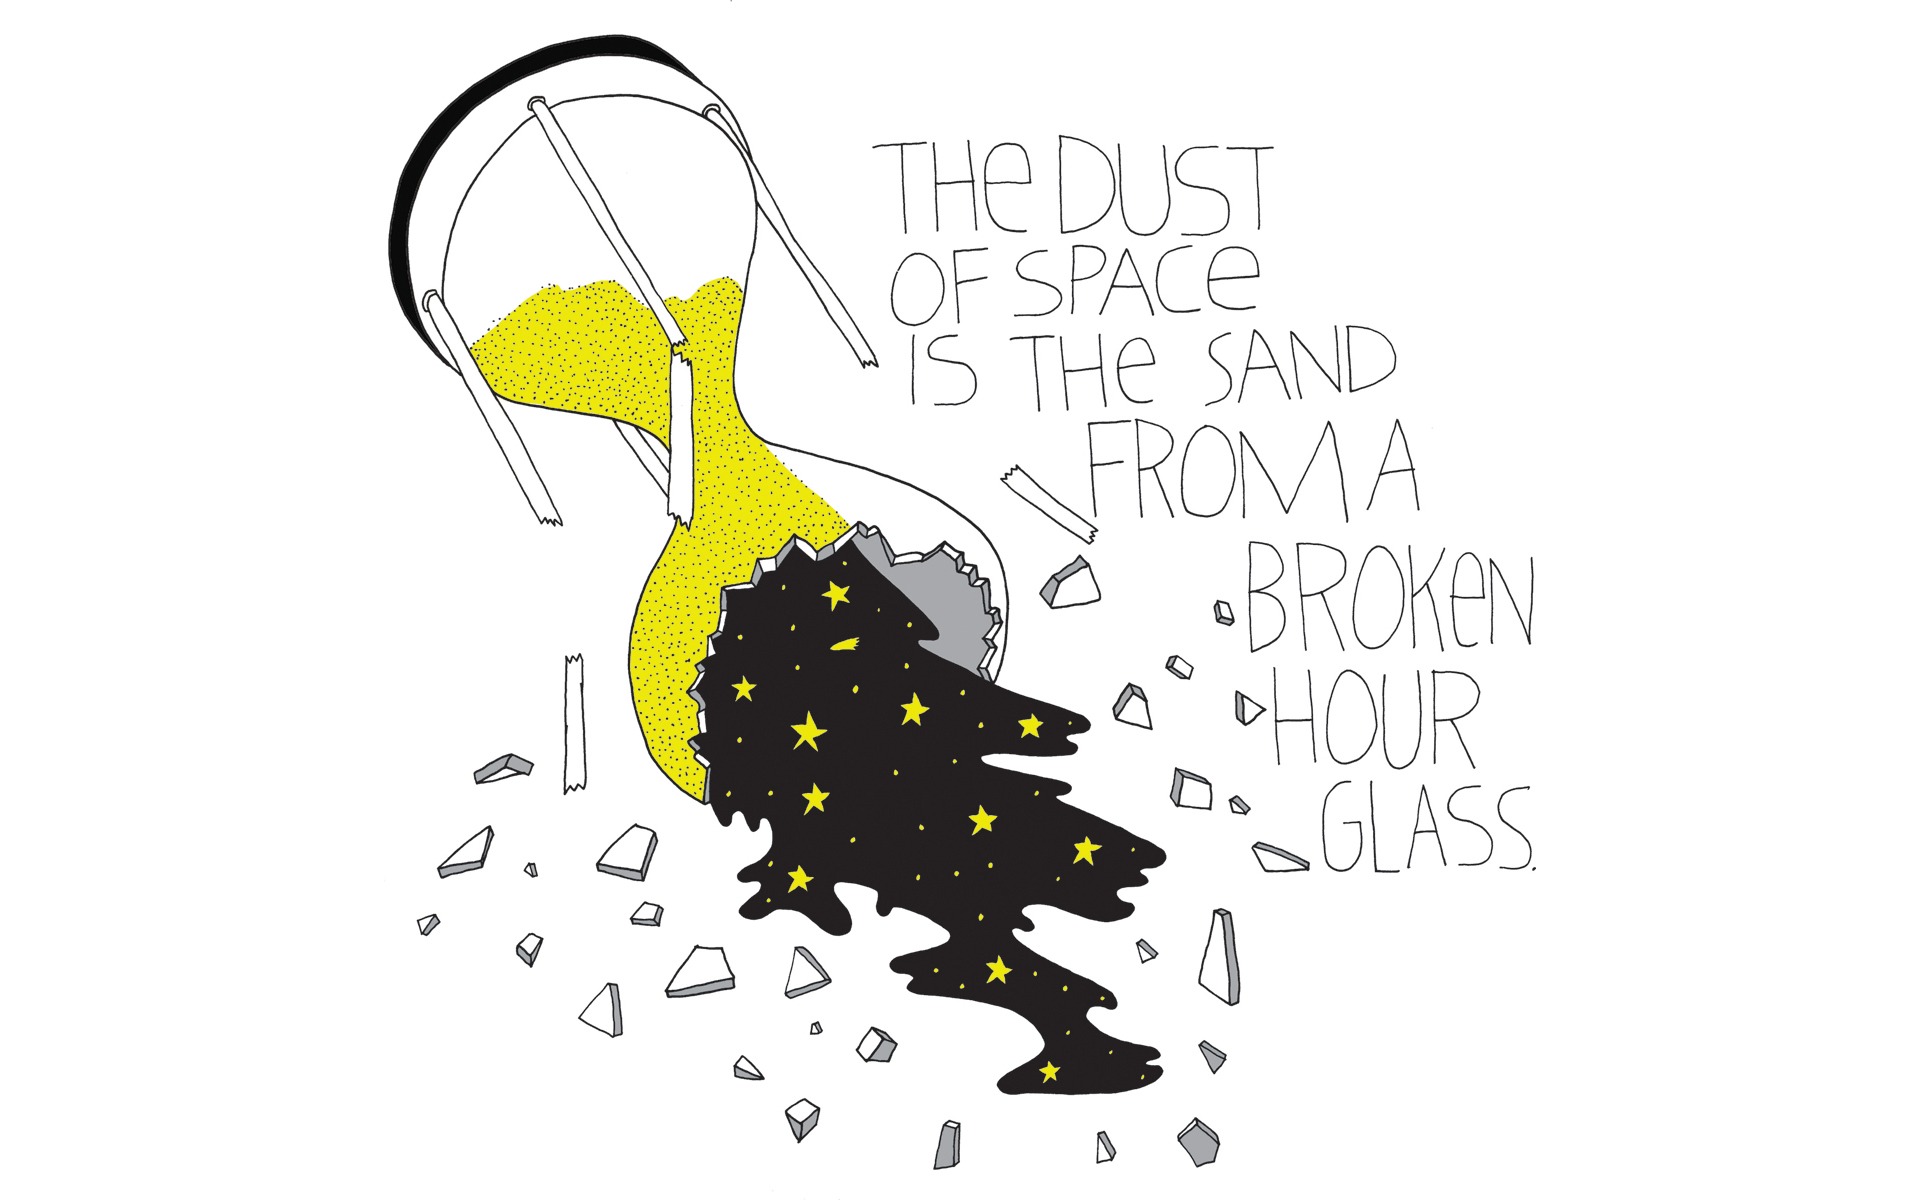 THe DUST
OF SPACe
IS THe SAND
FROM A
BROKeN
HOUR
GLASS.